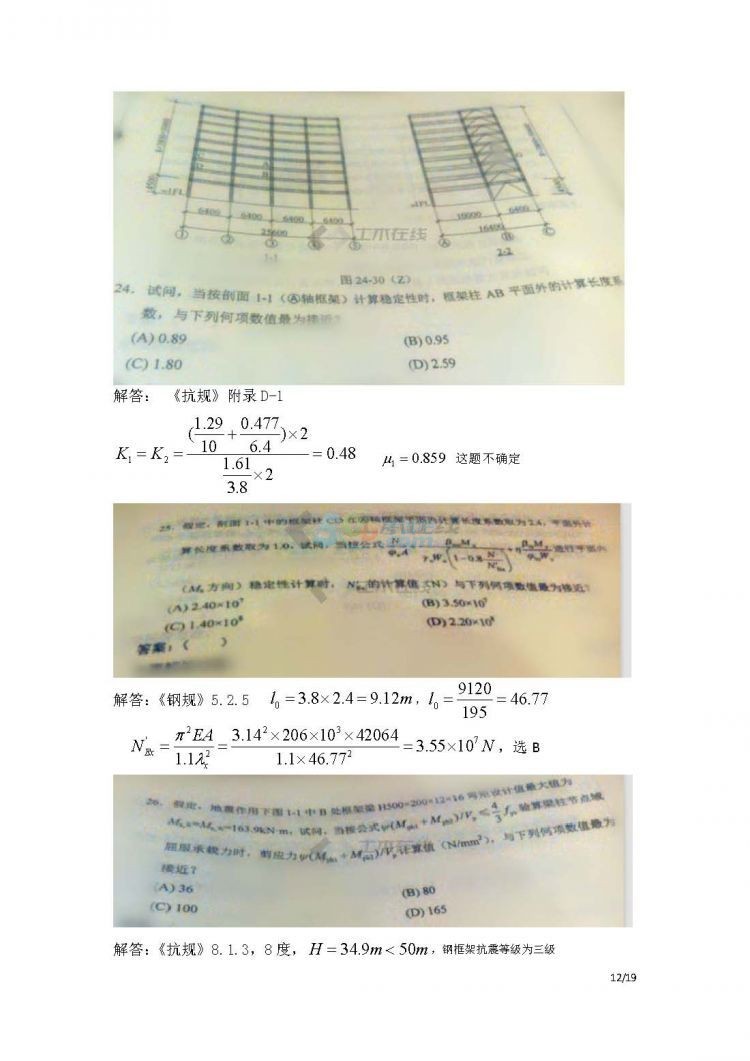 6400 6400 6400 6400
25600
① ② ③ ④ ⑤
1-1
10000 6400
16400
Ⓐ Ⓑ Ⓒ
2-2
土木在线
图24-30 (Z)
24. 试问，当按剖面 1-1（Ⓐ轴框架）计算稳定性时，框架柱 AB 平面外的计算长度系
数，与下列何项数值最为接近？
(A) 0.89 (B) 0.95
(C) 1.80 (D) 2.59
解答： 《抗规》附录 D-1
K₁ = K₂ = ((1.29/10 + 0.477/6.4)×2)/(1.61/3.8 ×2) = 0.48 μ₁ = 0.859 这题不确定
25. 假定，剖面 1-1 中的框架柱 CD 在Ⓐ轴框架平面内计算长度系数取为 2.4，平面外计
算长度系数取为 1.0，试问，当按公式 进行平面内
(Mₓ 方向) 稳定性计算时，N'Ex 的计算值 (N) 与下列何项数值最为接近？
(A) 2.40×10⁷ (B) 3.50×10⁷
(C) 1.40×10⁸ (D) 2.20×10⁸
答案：( )
解答：《钢规》5.2.5 l₀ = 3.8×2.4 = 9.12m，l₀ = 9120/195 = 46.77
N'Ex = π²EA/1.1λₓ² = 3.14²×206×10³×42064/1.1×46.77² = 3.55×10⁷ N，选 B
26. 假定，地震作用下图 1-1 中 B 处框架梁 H500×200×12×16 弯矩设计值最大值为
=163.9kN·m，试问，当按公式 ψ(Mpb1 + Mpb2)/Vp ≤ 4/3 fyv 验算梁柱节点域
屈服承载力时，剪应力 ψ(Mpb1 + Mpb2)/Vp 计算值 (N/mm²)，与下列何项数值最为
接近？
(A) 36 (B) 80
(C) 100 (D) 165
解答：《抗规》8.1.3，8 度， H = 34.9m < 50m，钢框架抗震等级为三级
12/19